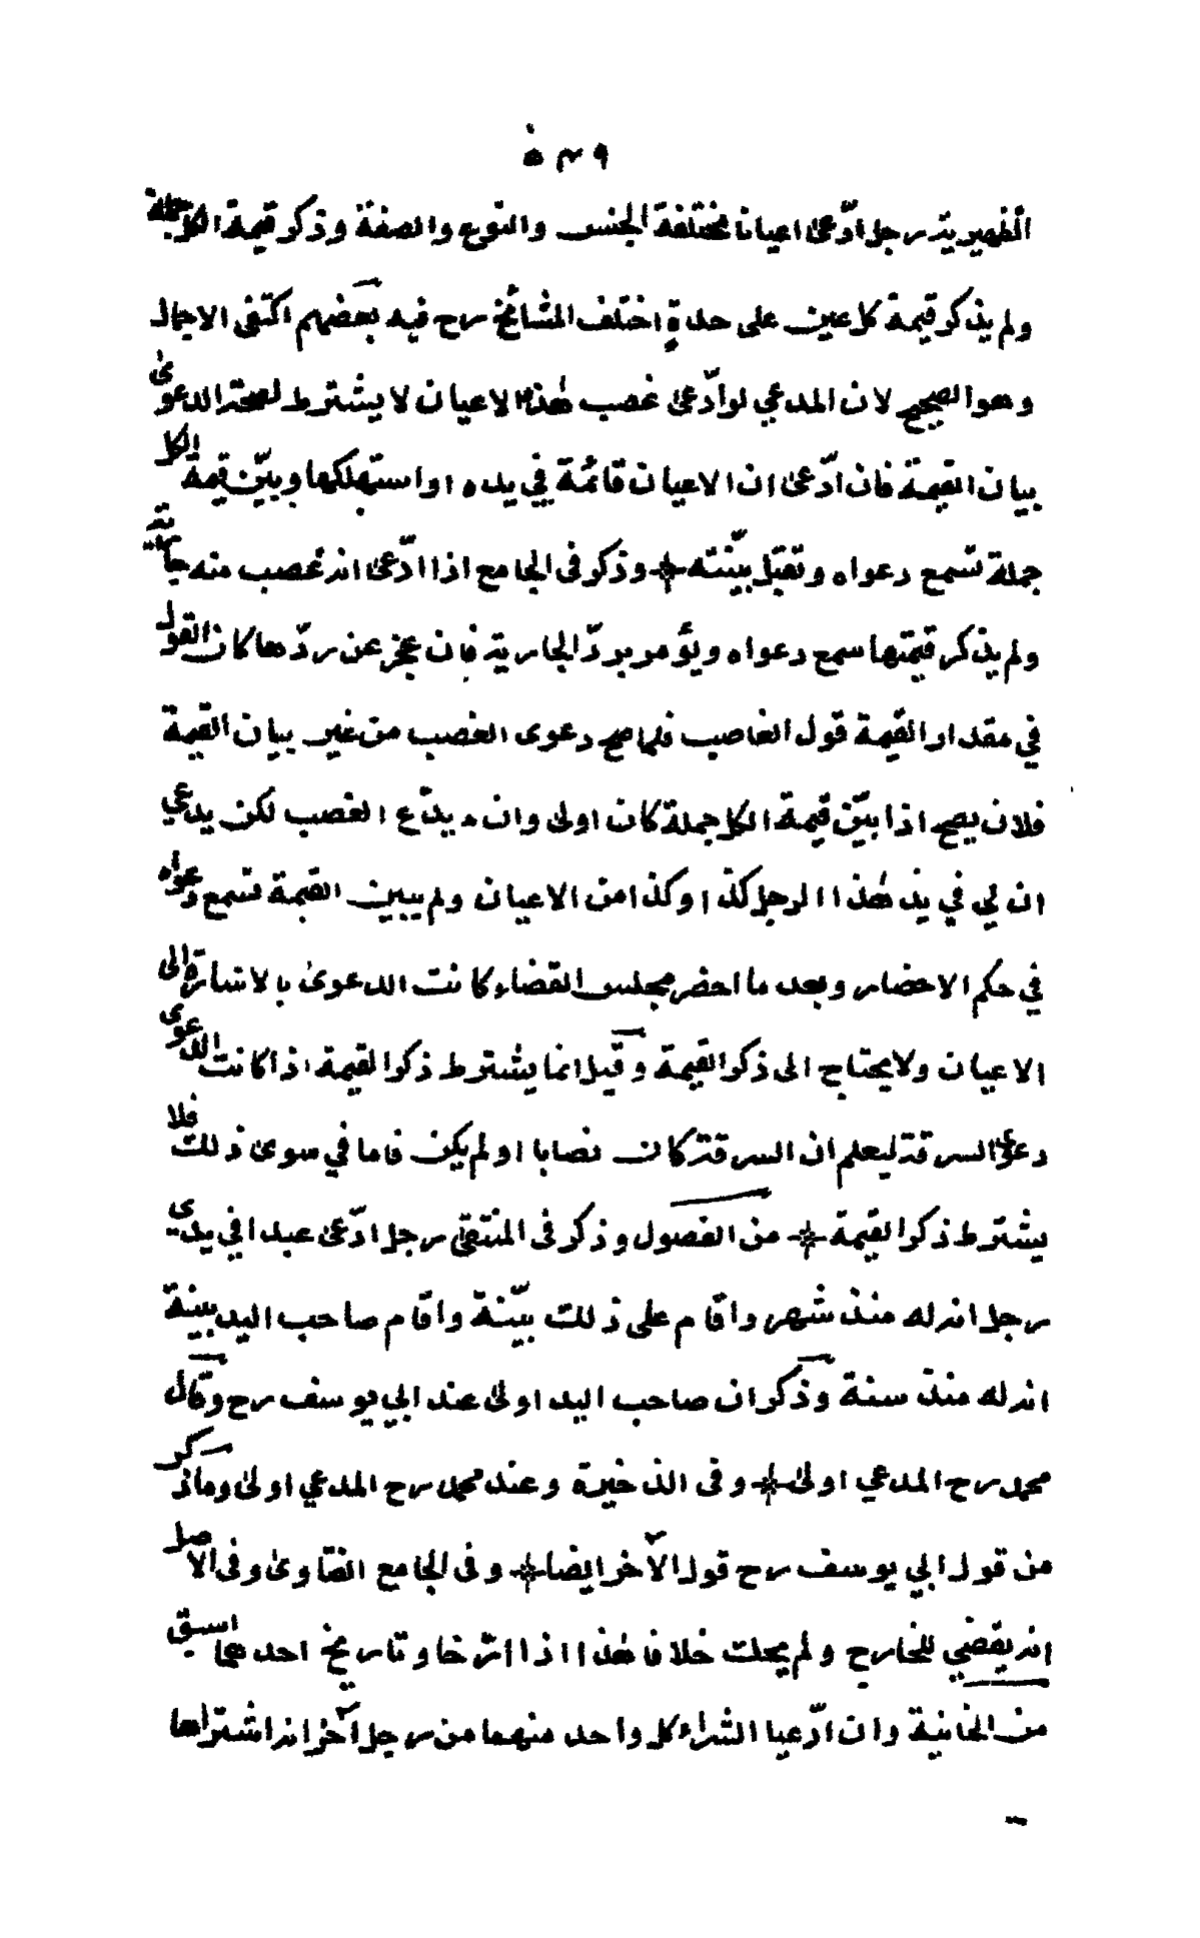 ۵۳۹
الظهيرية رجل ادّعى اعيانا مختلفة الجنس والنوع والصفة وذكر قيمة الكل جملة
ولم يذكر قيمة كل عين على حدةٍ اختلف المشائخ رح فيه بعضهم اكتفى الاجمال
وهو الصحيح لان المدعي لو ادّعى غصب هٰذه الاعيان لا يشترط لصحة الدعوىٰ
بيان القيمة فان ادّعى ان الاعيان قائمة في يده او استهلكها وبيّن قيمة الكل
جملة تسمع دعواه وتقبل بيّنته وذكر فى الجامع اذا ادّعى انه غصب منه جارية
ولم يذكر قيمتها سمع دعواه ويؤمر بردّ الجارية فان عجز عن ردّها كان القول
في مقدار القيمة قول الغاصب فلما صح دعوى الغصب من غير بيان القيمة
فلان يصح اذا بيّن قيمة الكل جملة كان اولى وان لم يدّع الغصب لكن يدعي
ان لي في يد هٰذا الرجل كذا وكذا من الاعيان ولم يبين القيمة تسمع دعواه
في حكم الاحضار وبعد ما احضر مجلس القضاء كانت الدعوىٰ بالاشارة الى
الاعيان ولا يحتاج الى ذكر القيمة وقيل انما يشترط ذكر القيمة اذا كانت الدعوى
دعوى السرقة ليعلم ان السرقة كان نصابا او لم يكن فاما في سوىٰ ذلك فلا
يشترط ذكر القيمة من الفصول وذكر فى المنتقىٰ رجل ادّعىٰ عبدا في يدي
رجل انه له منذ شهر واقام على ذلك بيّنة واقام صاحب اليد بينة
انه له منذ سنة وذكر ان صاحب اليد اولىٰ عند ابي يوسف رح وقال
محمد رح المدعي اولىٰ وفى الذخيرة وعند محمد رح المدعي اولىٰ وما ذكر
من قول ابي يوسف رح قول الآخر ايضا وفى الجامع الفتاوىٰ وفى الاصل
انه يقضي للخارج ولم يحك خلافا هٰذا اذا ارّخا وتاريخ احدهما اسبق
من الخانية وان ادّعيا الشراء كل واحد منهما من رجل آخر انه اشتراها